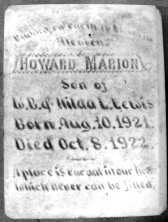 Budded on earth to bloom in
Heaven.
HOWARD MARION
Son of
W.B.& Hilda L. Lewis
Born Aug. 10, 1921.
Died Oct. 8, 1922.
A place is vacant in our home
which never can be filled.